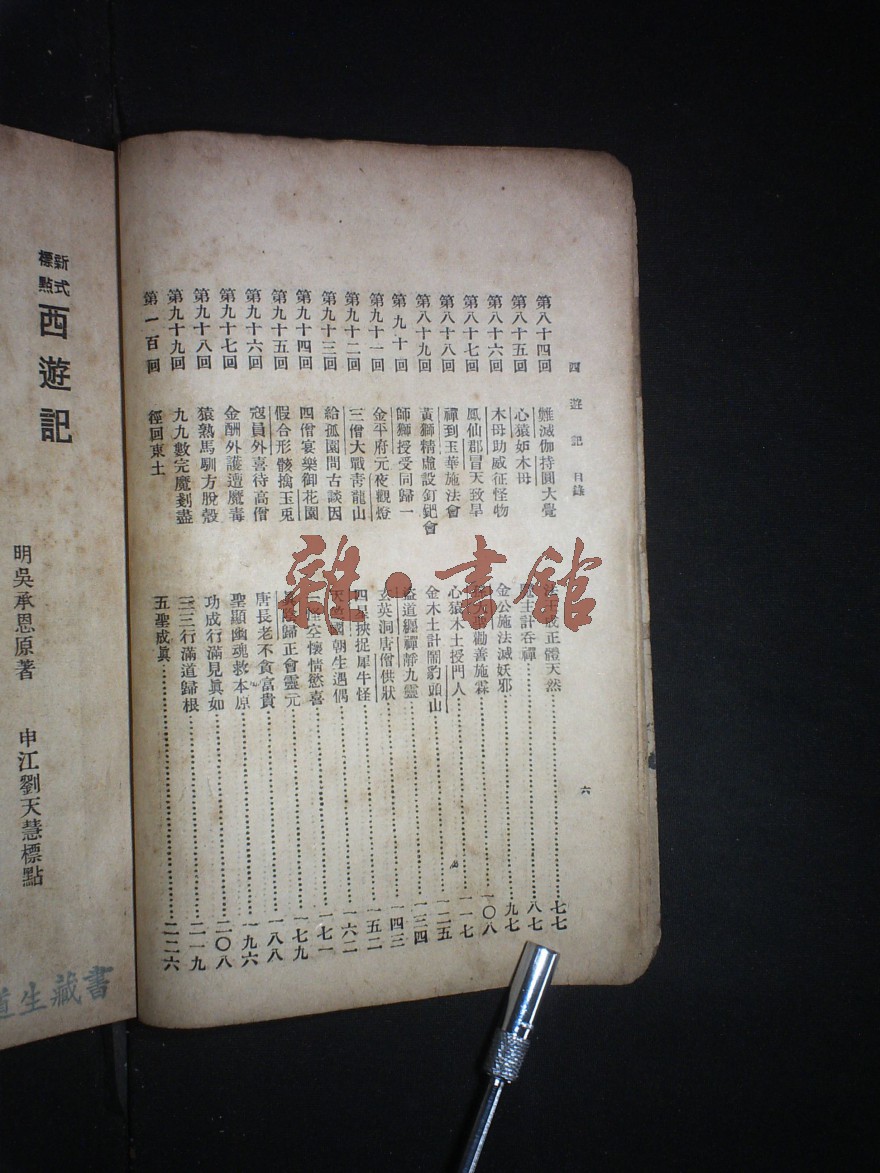 西遊記 目錄 六
第八十四回 難滅伽持圓大覺 王成正體天然 七七
第八十五回 心猿妬木母 主計吞禪 八七
第八十六回 木母助威征怪物 金公施法滅妖邪 九七
第八十七回 鳳仙郡冒天致旱 勸善施霖 一〇八
第八十八回 禪到玉華施法會 心猿木土授門人 一一七
第八十九回 黃獅精虛設釘鈀會 金木土計鬧豹頭山 一二五
第九十回 師獅授受同歸一 盜道纏禪靜九靈 一三四
第九十一回 金平府元夜觀燈 玄英洞唐僧供狀 一四三
第九十二回 三僧大戰青龍山 四星挾捉犀牛怪 一五二
第九十三回 給孤園問古談因 天竺國朝生遇偶 一六二
第九十四回 四僧宴樂御花園 怪空懷情慾喜 一七一
第九十五回 假合形骸擒玉兎 歸正會靈元 一七九
第九十六回 寇員外喜待高僧 唐長老不貪富貴 一八八
第九十七回 金酬外護遭魔毒 聖顯幽魂救本原 一九六
第九十八回 猿熟馬馴方脫殼 功成行滿見眞如 二〇八
第九十九回 九九數完魔剗盡 三三行滿道歸根 二一九
第一百回 徑回東土 五聖成眞 二二六
新式標點 西遊記
明吳承恩原著 申江劉天慧標點
道生藏書
雜·書館